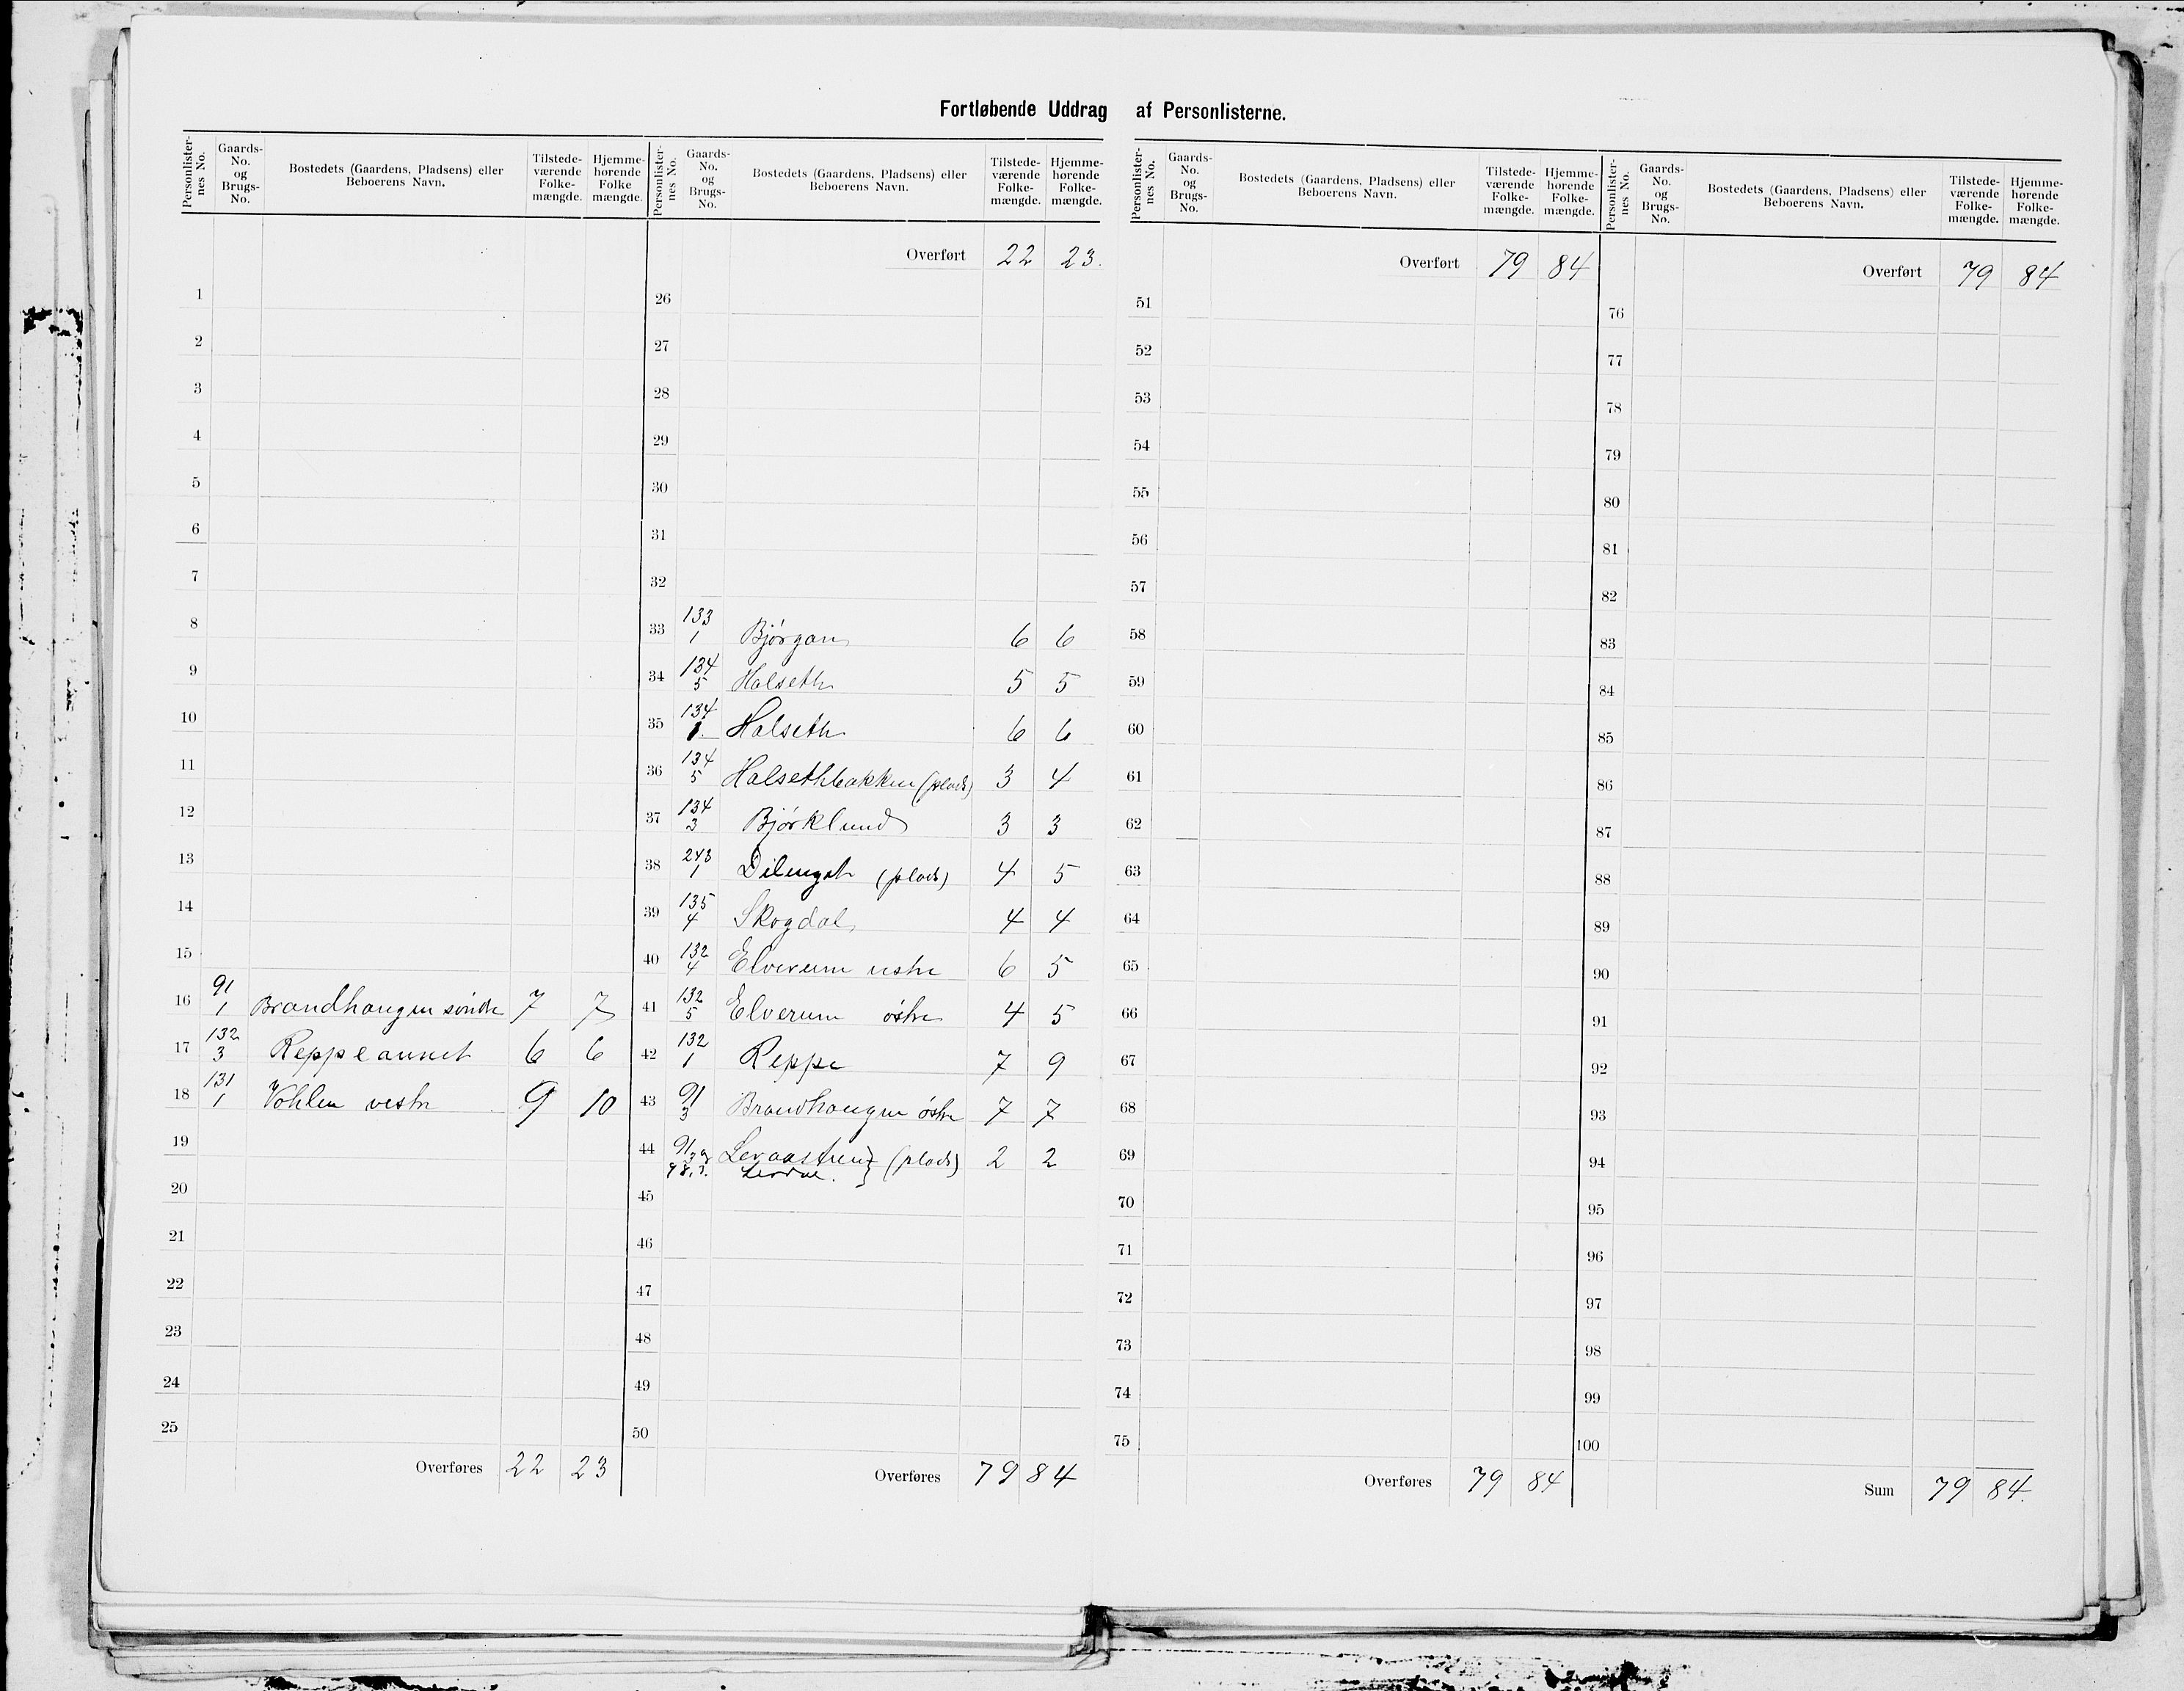 Fortløbende Uddrag af Personlisterne.
Personlister-nes No. Gaards-No. og Brugs-No. Bostedets (Gaardens, Pladsens) eller Beboerens Navn. Tilstede-værende Folke-mængde. Hjemme-hørende Folke mængde.
1
2
3
4
5
6
7
8
9
10
11
12
13
14
15
16 91/1 Brandhaugen søndre 7 7
17 132/3 Reppeaunet 6 6
18 131/1 Vohlen vestre 9 10
19
20
21
22
23
24
25
Overføres 22 23
Personlister-nes No. Gaards-No. og Brugs-No. Bostedets (Gaardens, Pladsens) eller Beboerens Navn. Tilstede-værende Folke-mængde. Hjemme-hørende Folke-mængde.
Overført 22 23.
26
27
28
29
30
31
32
33 133/1 Bjørgan 6 6
34 134/5 Halseth 5 5
35 134/1 Halseth 6 6
36 134/5 Halsethbakken (plads) 3 4
37 134/3 Bjørklund 3 3
38 243/1 (plads) 4 5
39 135/4 Skogdal 4 4
40 132/4 Elverum vestre 6 5
41 132/5 Elverum østre 4 5
42 132/1 Reppe 7 9
43 91/3 Brandhaugen østre 7 7
44 (plads) 2 2
45
46
47
48
49
50
Overføres 79 84
Personlister-nes No. Gaards-No. og Brugs-No. Bostedets (Gaardens, Pladsens) eller Beboerens Navn. Tilstede-værende Folke-mængde. Hjemme-hørende Folke-mængde.
Overført 79 84
51
52
53
54
55
56
57
58
59
60
61
62
63
64
65
66
67
68
69
70
71
72
73
74
75
Overføres 79 84
Personlister-nes No. Gaards-No. og Brugs-No. Bostedets (Gaardens, Pladsens) eller Beboerens Navn. Tilstede-værende Folke-mængde. Hjemme-hørende Folke-mængde.
Overført 79 84
76
77
78
79
80
81
82
83
84
85
86
87
88
89
90
91
92
93
94
95
96
97
98
99
100
Sum 79 84.